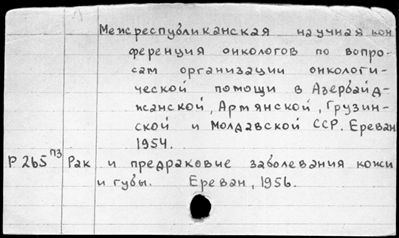 Межреспубликанская научная кон
ференция онкологов по вопро-
сам организации онкологи-
ческой помощи в Азербайд-
жанской, Армянской, Грузин-
ской и Молдавской ССР. Ереван
1954.
Р 265 П3 Рак и предраковые заболевания кожи
и губы. Ереван, 1956.